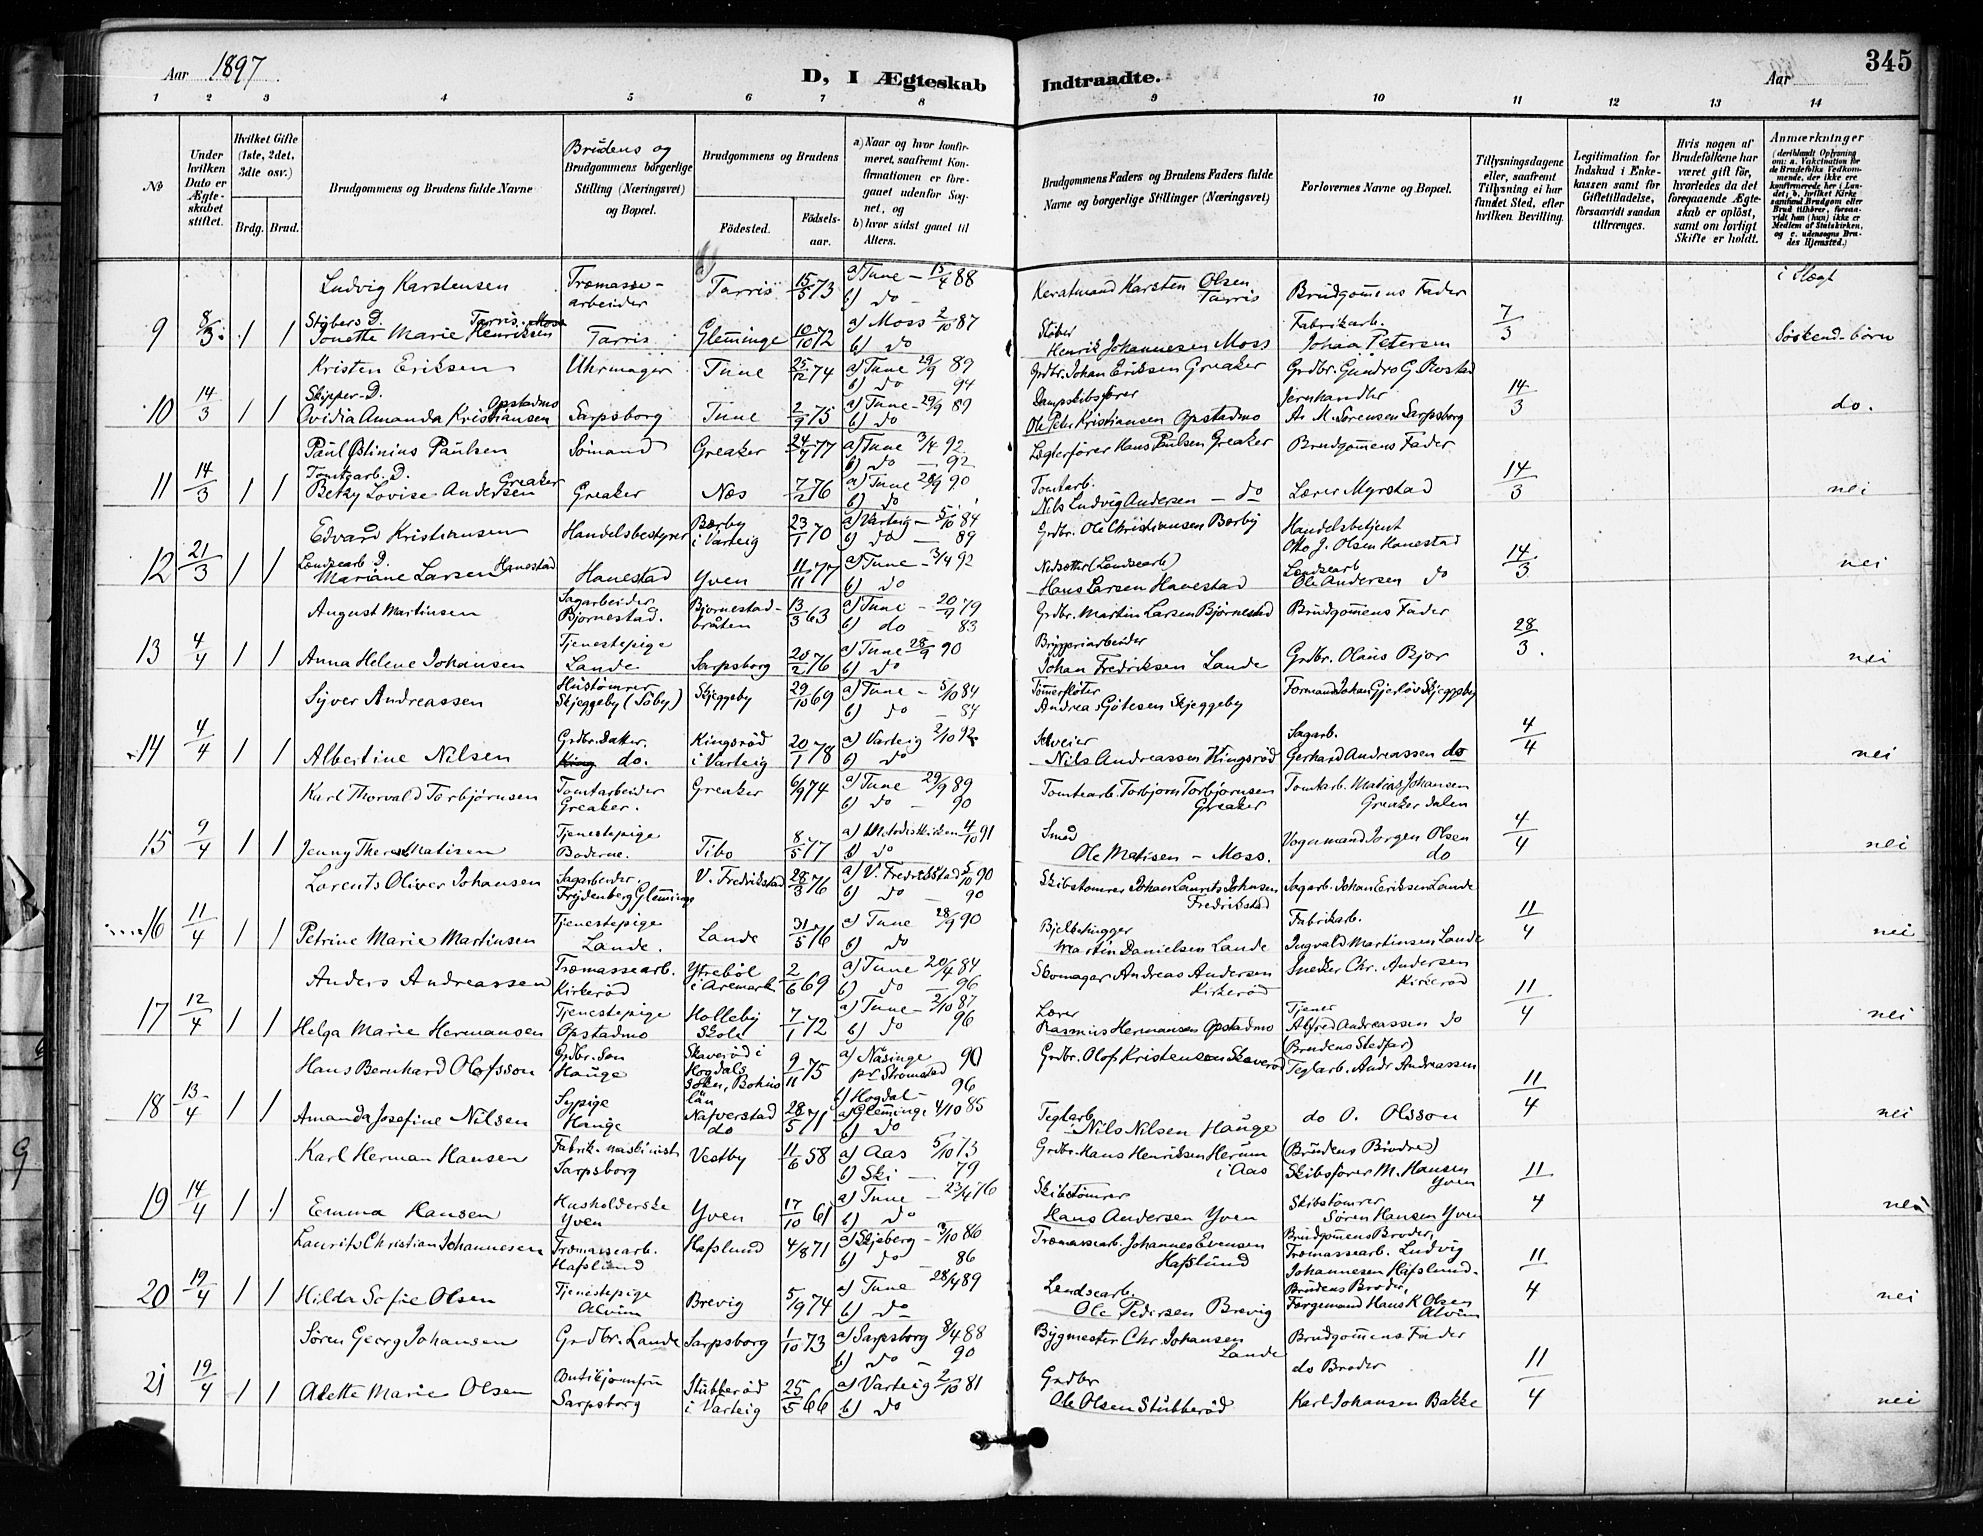 Aar 1897
D, I Ægteskab Indtraadte.
Aar
345
1 2 3 4 5 6 7 8 9 10 11 12 13 14
No
Under hvilken Dato er Ægteskabet stiftet.
Hvilket Gifte (1ste, 2det, 3die osv.)
Brdg. Brud.
Brudgommens og Brudens fulde Navne
Brudens og
Brudgommens borgerlige Stilling (Næringsvei) og Bopæl.
Brudgommens og Brudens
Fødested.
Fødselsaar.
a) Naar og hvor konfirmeret, saafremt Konfirmationen er foregaaet udenfor Sognet, og
b) hvor sidst gaaet til Alters.
Brudgommens Faders og Brudens Faders fulde Navne og borgerlige Stillinger (Næringsvei)
Forlovernes Navne og Bopæl.
Tillysningsdagene eller, saafremt Tillysning ei har fundet Sted, efter hvilken Bevilling.
Legitimation for Indskud i Enkekassen samt for Giftetilladelse, forsaavidt saadan tiltrænges.
Hvis nogen af Brudefolkene har været gift før, hvorledes da det foregaaende Ægteskab er opløst, samt om lovligt Skifte er holdt.
Anmærkninger
Ludvig Karstensen Træmassearbeider Tarris 15/5 73 a) Tune – 15/4 88 b) do Karsten Olsen Tarris Brudgomens Fader i Slægt
9 8/3 1 1 Støbers D. Jonette Marie Henriksen Tarris Tarris Gleminge 10/10 72 a) Moss 2/10 87 b) do Støber Henrik Johannesen Moss Fabrikarb. Johan Petersen 7/3 Søskendebørn
Kristen Eriksen Uhrmager Tune 25/12 74 a) Tune 29/9 89 b) do 94 Grdbr. Johan Eriksen Greaker Grdbr. Gundro G. Rostad
10 14/3 1 1 Skipper-D. Ovidia Amanda Kristiansen Opstadmo Sarpsborg Tune 2/9 75 a) Tune – 29/9 89 b) do Dampskibsfører Ole Peter Kristiansen Opstadmo Jernhandler A. M. Sørensen Sarpsborg 14/3 do.
Paul Østinius Paulsen Sømand Greaker 24/7 77 a) Tune 3/4 92 b) do – 92 Hans Paulsen Greaker Brudgomens Fader
11 14/3 1 1 Tomtearb. D. Betzy Lovise Andersen Greaker Greaker Næs 7/2 76 a) Tune 28/9 90 b) do Tomtarb. Nils Ludvig Andersen – do Lærer Myrstad 14/3 nei
Edvard Kristiansen Handelsbestyrer Børby i Varteig 23/1 70 a) Varteig – 5/10 84 b) do – 89 Grdbr. Ole Christiansen Børby Handelsbetjent Otto J. Olsen Hanestad
12 21/3 1 1 Landsearb. D. Mariane Larsen Hanestad Hanestad Yven 11/11 77 a) Tune – 3/4 92 b) do (Landsearb) Hans Larsen Hanestad Landsearb Ole Andersen do 14/3 nei
August Martinsen Sagarbeider Bjørnestad. Bjørnestadbråten 13/3 63 a) Tune – 20/4 79 b) do – 83 Grdbr. Martin Larsen Bjørnestad Brudgomens Fader
13 4/4 1 1 Anna Helene Johansen Tjenestepige Lande Sarpsborg 20/2 76 a) Tune 28/9 90 b) do Bryggeriarbeider Johan Fredriksen Lande Grdbr. Olaus Bjor 28/3. nei
Syver Andreassen Hustømrer Skjeggeby (Taby) Skjeggeby 29/10 69 a) Tune – 5/10 84 b) do – 84 Tømerfløter Andreas Gøtesen Skjeggeby Formand Johan Gjerløv Skjeggeby
14 4/4 1 1 Albertine Nilsen Grdbr. Datter. do. Kingsrød i Varteig 20/1 78 a) Varteig 2/10 92 b) do Selveier Nils Andreassen Kingsrød Sagarb. Gerhard Andreassen do 4/4 nei
Karl Thorvald Torbjørnsen Tomtarbeider Greaker. Greaker 6/9 74 a) Tune 29/9 89 b) do – 90 Tomtearb. Torbjørn Torbjørnsen Greaker Tomtarb. Matias Johansen Greakerdalen
15 9/4 1 1 Jenny Therese Matisen Tjenestepige Boderne. Tibo 8/5 77 a) Metodistkirken 4/10 91 b) do Smed Ole Matisen – Moss. Vognmand Jørgen Olsen do 4/4 nei
Lorents Oliver Johansen Sagarbeider, Frydenberg Gleminge V. Fredrikstad 28/3 76 a) V. Fredrikstad 5/10 90 b) do 90 Skibstømrer Johan Laurits Johnsen Fredrikstad Sagarb. Johan Eriksen Lande
16 11/4 1 1 Petrine Marie Martinsen Tjenestepige Lande. Lande 31/5 76 a) Tune 28/9 90 b) do Bjelkehugger Martin Danielsen Lande Fabrikarb. Ingvald Martinsen Lande 11/4 nei
Anders Andreassen Træmassearb. Kirkerød Ytrebøl i Aremark 2/6 69 a) Tune 20/4 84 b) do – 96 Skomager Andreas Andersen Kirkerød Snedker Chr. Andersen Kirkerød
17 12/4 1 1 Helga Marie Hermansen Tjenestepige Opstadmo Holleby Skole 7/1 72 a) Tune – 2/10 87 b) do 96 Lærer Rasmus Hermansen Opstadmo Tjener Alfred Andreassen do 11/4 nei
Hans Bernhard Olofsson Grdbr. Søn Hauge Skaverød i Hogdals Soken, Bohus län 9/11 75 a) Näsinge pr Strømstad 90 b) Hogdal – 96 Grdbr. Olof Kristensson Skaverød (Brudens Stedfar) Teglarb. Andr Andreassen
18 13/4 1 1 Amanda Josefine Nilsen Sypige Hauge Nafverstad do 28/5 71 a) Gleminge 4/10 85 b) do Teglarb. Nils Nilsen Hauge do O. Olsson 11/4 nei
Karl Herman Hansen Fabrik-maskinist Sarpsborg Vestby 11/6 58 a) Aas 5/10 73 b) Ski – 79 Grdbr. Hans Henriksen Herum i Aas (Brudens Brødre) Skibsfører M. Hansen Yven
19 14/4 1 1 Emma Hansen Husholderske Yven Yven 17/10 61 a) Tune – 23/4 76 b) do Skibstømrer Hans Andersen Yven Skibstømrer Søren Hansen Yven 11/4 nei
Laurits Christian Johannesen Træmassearb. Hafslund Hafslund 4/8 71 a) Skjeberg – 3/10 86 b) do 86 Træmassearb. Johannes Evensen Hafslund Brudgomens Broder, Træmassearb. Ludvig Johannesen Hafslund.
20 19/4 1 1 Hilda Sofie Olsen Tjenestepige Alvim Brevig 5/9 74 a) Tune 28/9 89 b) do Landsearb. Ole Pedersen Brevig Brudens Broder, Hans K. Olsen Alvim 11/4 nei
Søren Georg Johansen Grdbr. Lande Sarpsborg 1/10 73 a) Sarpsborg 8/4 88 b) do – 90 Bygmester Chr. Johansen Lande Brudgomens Fader
21 19/4 1 1 Alette Marie Olsen Butikjomfru Sarpsborg Stubberød i Varteig 25/5 66 a) Varteig 2/10 81 b) do Grdbr Ole Olsen Stubberød do Broder Karl Johansen Bakke 11/4 nei